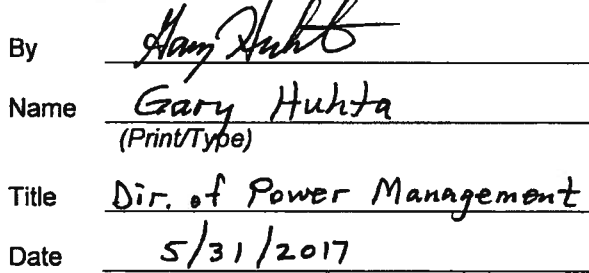 By Gary Huhta
Name Gary Huhta
(Print/Type)
Title Dir. of Power Management
Date 5/31/2017